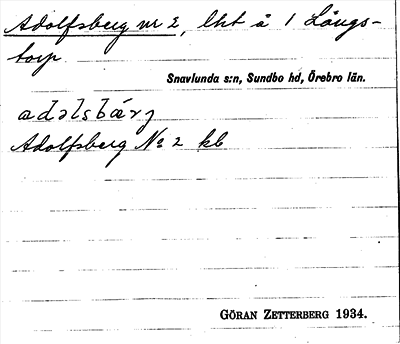 Adolfsberg nr 2, lht å 1 Långs-
torp
Snavlunda s:n, Sundbo hd, Örebro län.
adɔlsbárj
Adolfsberg No 2 kb
GÖRAN ZETTERBERG 1934.